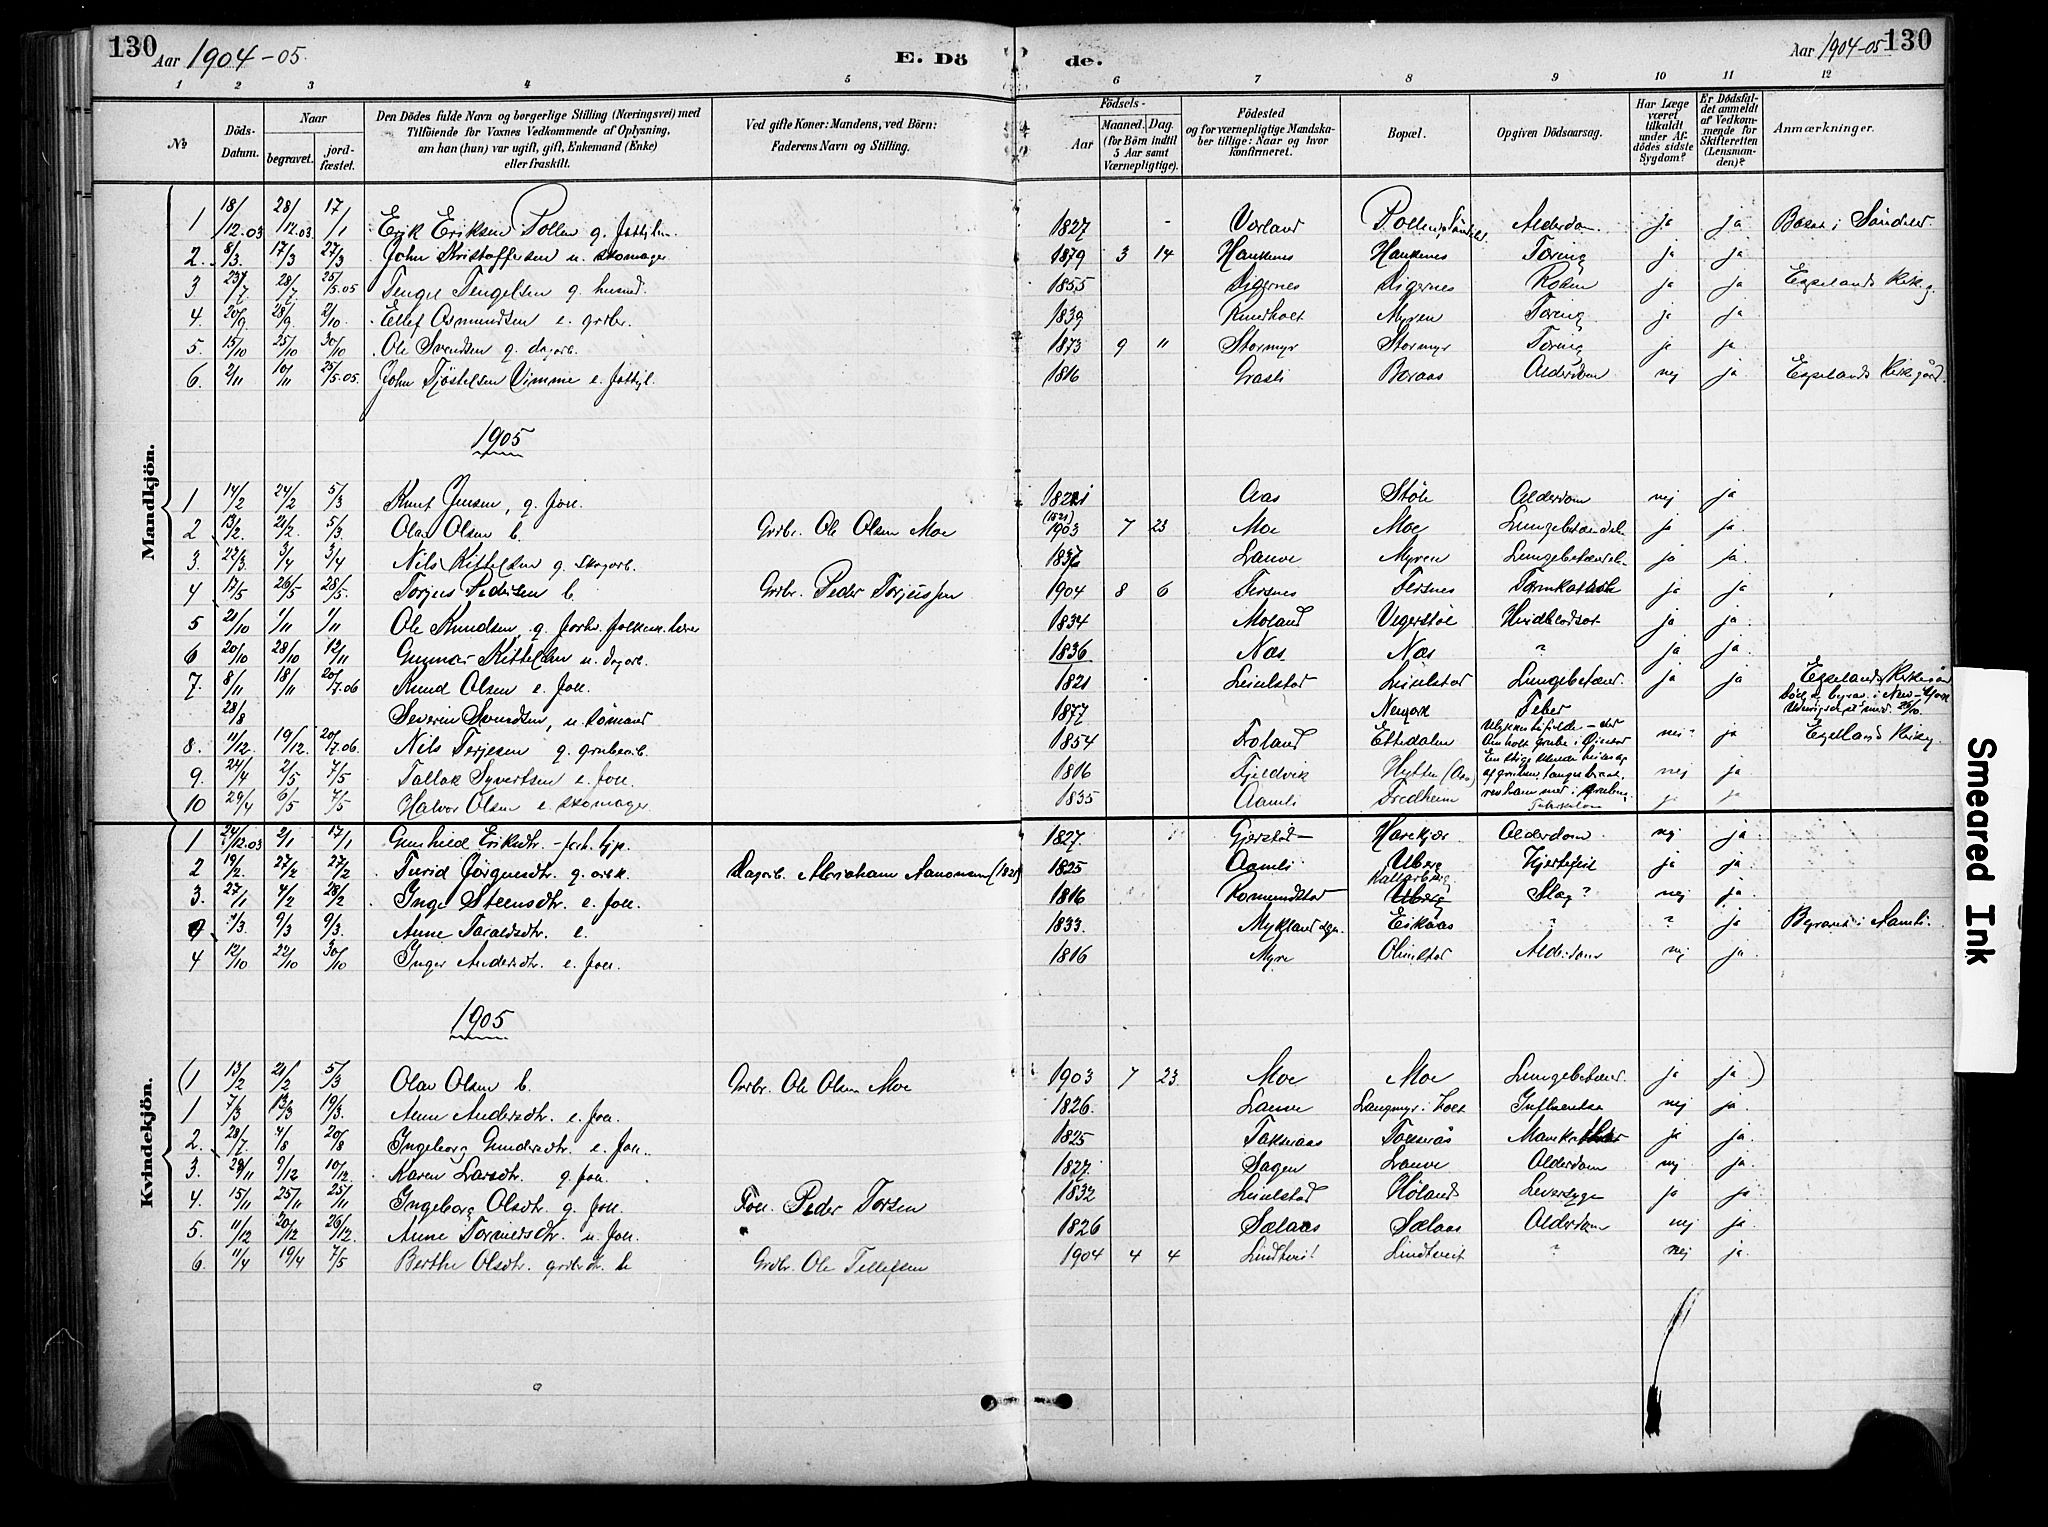 130 Aar 1904-05. E. Dö de. Aar 1904-05 130
1 2 3 4 5 6 7 8 9 10 11 12
№
Döds-Datum.
Naar
begravet.
jord-fæstet.
Den Dödes fulde Navn og borgerlige Stilling (Næringsvei) med
Tilföiende for Voxnes Vedkommende af Oplysning,
om han (hun) var ugift, gift, Enkemand (Enke)
eller fraskilt.
Ved gifte Koner: Mandens, ved Börn:
Faderens Navn og Stilling.
Födsels-
Aar
Maaned. Dag.
(for Börn indtil
5 Aar samt
Værnepligtige).
Födested
og for værnepligtige Mandska-
ber tillige: Naar og hvor
konfirmeret.
Bopæl.
Opgiven Dödsaarsag.
Har Læge
været
tilkaldt
under Af-
dödes sidste
Sygdom?
Er Dödsfal-
det anmeldt
af Vedkom-
mende for
Skifteretten
(Lensman-
den)?
Anmærkninger.
Mandkjön.
1 18/12.03 28/12.03 17/1 Erik Eriksen Pollen g. 1827 Alderdom. ja ja Bosat i Söndeled
2. 8/3. 17/3 27/3 John Kristoffersen u. skomager 1879 3 14 Haukenes Haukenes Tæring ja ja
3 23/7 28/7 25/5.05 Tengel Tengelsen g. husmd. 1855 Digernes Digernes ja ja Espelands Kirkeg.
4. 20/9 28/9. 2/10. Ellef Osmundsen e. grdbr. 1839 Knudholt Myren Tæring ja ja
5. 15/10 25/10 30/10 Ole Svendsen g. dagarb. 1873 9 11 Stormyr Stormyr Tæring ja ja.
6. 2/11 10/11 25/5.05. John Tjöstelsen Vimme e. 1816 Grasli Boraas Alderdom nej ja Espelands Kirkegård.
1905
1 14/2 24/2 5/3 Knut Jensen, g. 1821 Aas Stöle Alderdom nej ja
2 13/2. 21/2. 5/3. Olav Olsen b. Grdbr. Ole Olsen Moe 1903 7 23 Moe Moe Lungebetændelse ja ja
3. 22/3 3/4 3/4 Nils Kittelsen g. skogarb. 1837 Lauve Myren ja ja
4 17/5 26/5 28/5. Torjus Pedersen b. Grdbr. Peder Torjussen 1904 8 6 Fersnes Fersnes Tarmkatarrh ja ja
5 21/10 1/11 1/11 Ole Knudsen g. 1834 Moland Vegerstöl ja ja
6 20/10 28/10 12/11 Gunnar Kittelsen u. dagarb. 1836 Næs Næs ? ja ja
7. 8/11 18/11 20/7.06 Knud Olsen e. 1821 Leielstad Leielstad ja ja Espelands Kirkegård
28/8 Severin Svendsen, u. sömand 1877 Newyork Feber
8. 11/12. 19/12. 20/7.06. Nils Terjesen g. grubearb. 1854 Froland Ettedalen nej ja Espeland Kirkeg.
9. 24/4 2/5 7/5 Tallak Syvertsen e. 1816 Fjeldvik Hytten nej ja
10 29/4 6/5 7/5 Halvor Olsen e. skomager. 1835 Aamli Fredheim ja ja
Kvindekjön.
1 24/12.03 2/1 17/1 Gunhild Eriksdtr. 1827. Gjerstad Havekjær Alderdom nej ja
2 19/2. 27/2 27/2 Turid Jörgensdtr. g. Dagarb. Abraham Aanonsen 1825 Aamli Uberg Hjertefeil ja ja
3. 27/1 4/2 28/2 Inge Steensdtr. e. 1816 Slag? nej ja
1/3. 9/3 9/3. Anne Taraldsdtr. e. 1833. Mykland Eskaas ? ja Begravet i Aamli.
4 12/10 22/10 30/10 Inger Andersdtr. e. 1816 Myre Alderdom nej ja
1905
(1 13/2 21/2 5/3 Olav Olsen b. Grdbr. Ole Olsen Moe 1903 7 23. Moe Moe Lungebetænd. ja ja)
1 7/3 13/3 19/3. Anne Andersdtr. e. 1826. Lauve Langmyr i Holt Influentsa nej ja.
2. 28/7 4/8 20/8 Ingeborg Gundersdtr e. 1825 Taknaas ja ja.
3. 29/11 9/12 10/12. Karen Larsdtr. g. 1827. Sagen Lauve Alderdom nej ja.
4. 15/11 25/11 25/11 Ingeborg Olsdtr. g. Peder Torsen 1832 Leielstad Höland Leversyge ja ja
5. 11/12 20/12 26/12. Anne u. 1826 Sælaas Sælaas Alderdom nej ja.
6. 11/4 19/4 7/5 Berthe Olsdtr. b Grdbr. Ole Tellefsen 1904 4 4 Lindtveit Lindtveit ? nej ja.
Smeared Ink